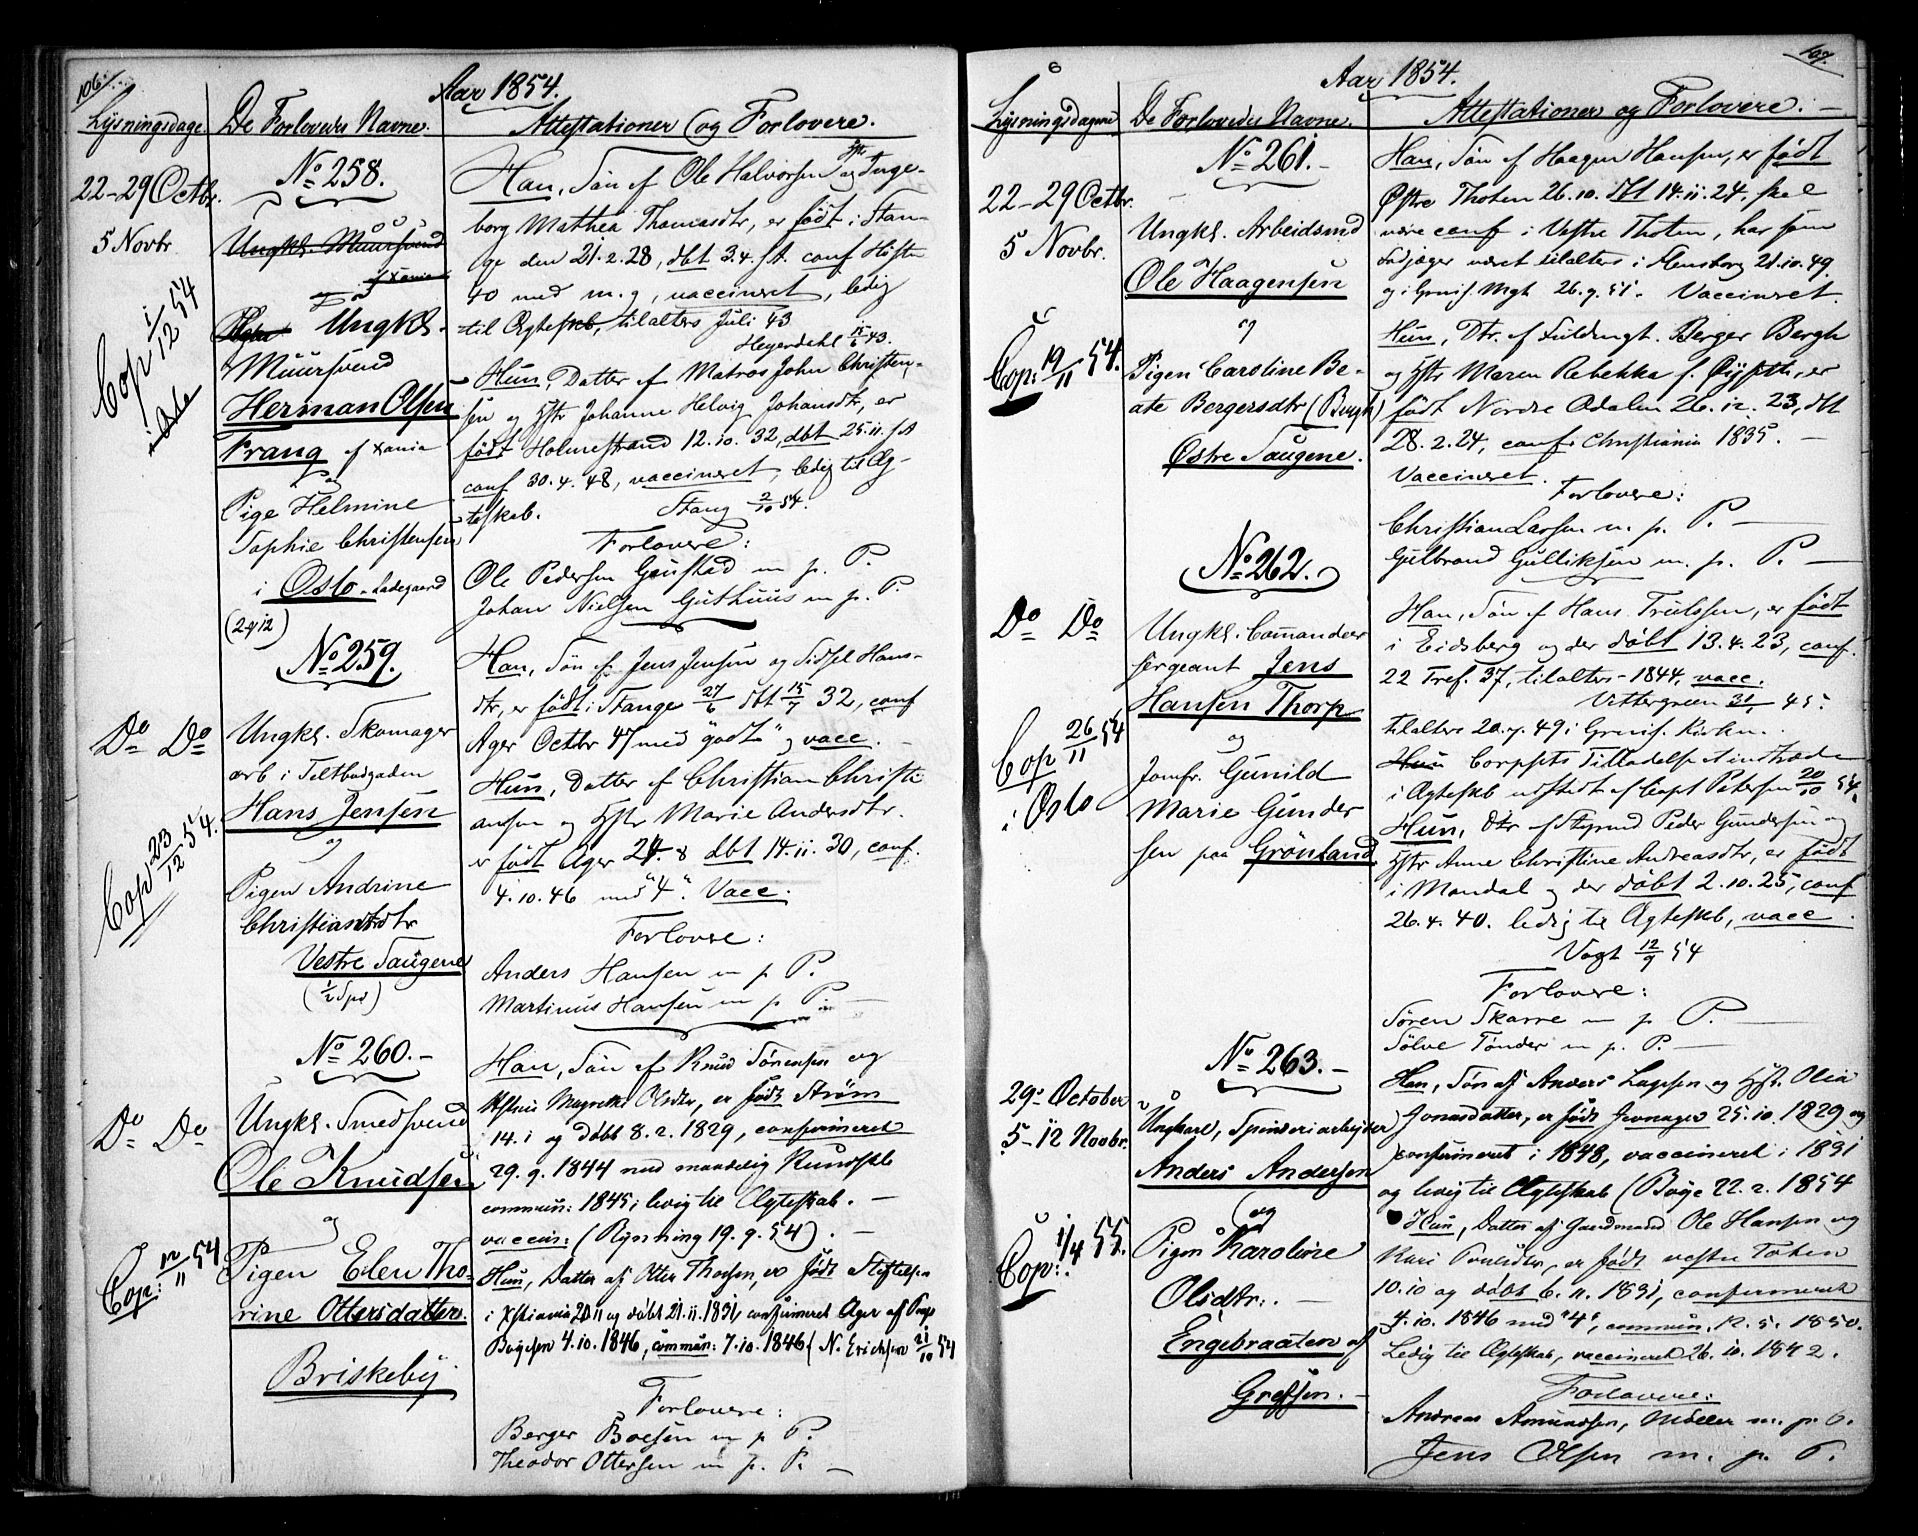 106
Aar 1854.
Lysningsdage. De Forlovedes Navne. Attestationer og Forlovere.
22-29 Octbr.
5 Novbr
Cop 1/12 54
i Oslo
No 258.
Ungkl. Muursvend
af Xania
Ungkl.
Muursvend
Herman Olsen
Frang af Xania
og
Pige Helmine
Sophie Christensen
i Oslo Ladegaard
(2 12)
Han, Søn af Ole Halvorsen og Inge-
borg Mathea Thomasdtr, er født i Stan-
ge den 21.2.28, dbt 3.4. s.A. conf Høsten
40 med m.g, vaccineret, ledig
til Ægteskb, tilalters Juli 43
Heyerdahl 15/6 43.
Hun, Datter af Matros John Christen-
sen og Hstr Johanne Helvig Johansdtr, er
født Holmestrand 12.10.32, dbt 25.11. s A
conf 30.4.48, vaccineret, ledig til Æg-
teskab. Stang 2/10 54.
Forlovere:
Ole Pedersen Gaustad m. p. P.
Johan Nielsen Guthuus m. p. P.
Do Do
Cop 23/12 54.
No 259.
Ungkl. Skomager
arb i Teltbudgaden
Hans Jensen
og
Pigen Andrine
Christiansdtr
Vestre Saugene
(1/2 Spd)
Han, Søn af Jens Jensen og Sidsel Hans-
dtr, er født i Stange 27/6 dbt 15/7 32, conf
Ager Octbr 47 med "godt" og vacc. -
Hun, Datter af Christian Christi-
ansen og Hstr Marie Andersdtr.
er født Ager 24.8 dbt 14.11.30, conf.
4.10.46 med "4". Vacc.
Forlovere:
Anders Hansen m p P.
Martinus Hansen m p P.
Do Do
Cop: 12/11 54
No 260. -
Ungkl. Smedsvend
Ole Knudsen
og
Pigen Elen Tho-
rine Ottersdatter.
Briskeby.
Han, Søn af Knud Sørensen og
Magrethe Olsdtr, er født Strøm
14.1 og døbt 8.2.1829, confirmeret
29.9.1844 med maadelig Kundskb
commun: 1845; ledig til Ægteskab. -
vaccin: (Rynning 19.9.54). -
Hun, Datter af Otter Thorsen, er født Stiftelsen
i Xstiania 20.11 og døbt 21.11.1831, confirmeret Ager af Prov
Boyesen 4.10.1846, commun: 7.10.1846 (N. Erichsen 21/10 54
Forlovere:
Berger Boesen m p P.
Theodor Ottersen m. p. P. -
107.
Aar 1854.
Lysningsdagene De Forlovedes Navne. Attestationer og Forlovere. -
22-29 Octbr.
5 Novbr.
Cop: 19/11 54.
No 261. -
Ungkl. Arbeidsmd
Ole Haagensen
og
Pigen Caroline Be-
ate Bergersdtr (Bergh)
Østre Saugene.
Han, Søn af Haagen Hansen, er født
Østre Thoten 26.10. dbt 14.11.24. skal
være conf i Vestre Thoten, har som
Fodjæger været tilalters i Flensborg 21.10.49
og i Garnis. Mgh 26.9.51. Vaccineret.
Hun, Dtr. af Fuldmgt. Berger Bergh
og Hstr Maren Rebekka f. , er
født Nordre Odalen 26.12.23, dbt
28.2.24, conf Christiania 1835. -
Vaccineret.
Forlovere:
Christian Larsen m. p. P. -
Gulbrand Gulliksen m. p. P. -
Do Do
Cop 26/11 54
i Oslo
No 262.
Ungkl. Comandeer
sergeant Jens
Hansen Thorp
og
Jomfr. Gunild
Marie Gunder
sen paa Grønland
Han, Søn af Hans Trulssen, er født
i Eidsberg og der døbt 13.4.23, conf.
22 Tref. 37, tilalters 1844, vacc.
Vettergreen 31/ 45.
tilalters 20.9.49 i Garnis. Kirken.
Hun Corpsets Tilladelse at indtræde
i Ægteskb udstedt af Capt Petersen 20/10 54.
Hun, Dtr af Styrmd Peder Gundersen og
Hstr Anne Christine Andreasdtr, er født
i Mandal og der døbt 2.10.25, conf
26.4.40. ledig til Ægteskb, vacc.
Vogt 12/9 54
Forlovere:
Søren Skarre m p P. -
Sølve Tønder m. p. P. -
29. October
5-12 Novbr.
Cop: 1/4 55.
No 263. -
Ungkarl, Spinderiarbejder
Anders Andersen
og
Pigen Karoline
Olsdtr: -
Engebraaten af
Grefsen. -
Han, Søn af Anders Larsen og Hst. Olia
Jonasdatter, er født Jevnager 25.10.1829 og
confirmeret i 1848, vaccineret i 1831
og ledig til Ægteskab (Boye 22.2.1854
Hun, Datter af Gaardmand Ole Hansen og
Kari Poulsdtr, er født vestre Toten
10.10 og døbt 6.11.1831, confirmeret
4.10.1846 med "4", commun. 12.5.1850.
Ledig til Ægteskab, vaccineret 26.10.1842.
Forlovere:
Andreas Amundsen, Møller m. p. P.
Jens Olsen m. p. P.